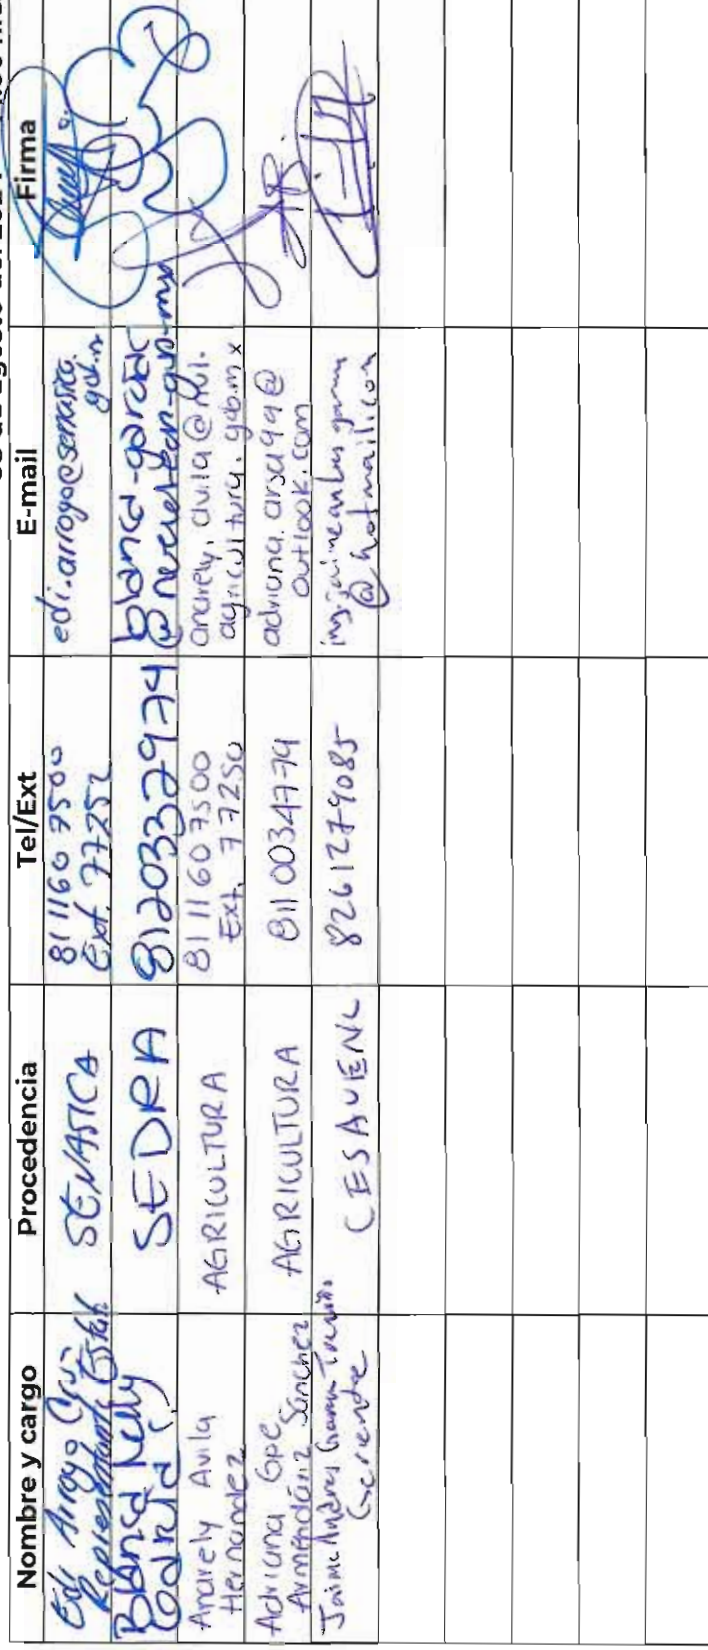 Nombre y cargo Procedencia Tel/Ext E-mail Firma
Edi Arroyo Cruz
Representante Estatal
SENASICA
81 1160 7500
Ext. 77252
edi.arroyo@senasica.
gob.m
Blanca Nelly
García
SEDRA
8120332974
blanca-garcia
Anarely Avila
Hernandez
AGRICULTURA
81 11 60 7500
Ext. 77250
anarely.avila@nvl.
agricultura.gob.mx
Adriana Gpe
Armendáriz Sánchez
AGRICULTURA
811 0034774
adriana.arsa99@
outlook.com
Jaime Andres Garza Treviño
Gerente
CESAVENL
8261279085
@hotmail.com